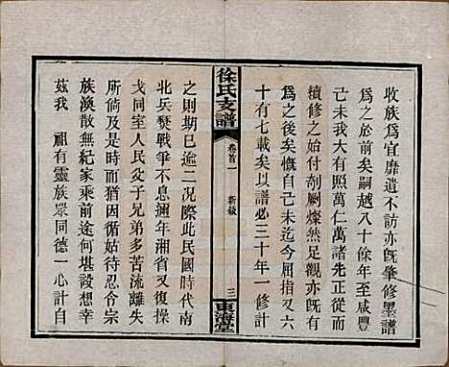 收族爲宜靡遺不訪亦旣肇修墨譜
爲之於前矣嗣越八十餘年至咸豐
己未我大有照萬仁萬諸先正從而
續修之始付剞劂燦然足觀亦旣有
爲之後矣慨自己未迄今屈指又六
十有七載矣以譜必三十年一修計
徐氏支譜
卷首一
新敍
三
東海堂
之則期已逾二况際此民國時代南
北兵燹戰爭不息邇年湘省又復操
戈同室人民爻于兄弟多苦流離失
所倘及是時而猶因循姑待忍合宗
族渙散無紀家乘前途何堪設想幸
茲我 祖有靈族眾同德一心計自